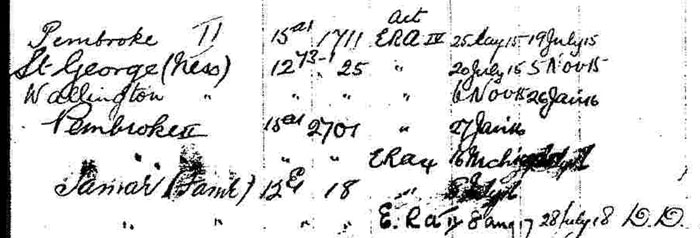 Act
Pembroke II 15a1 1711 ERA IV 25 May 15 19 July 15
St George (Ness) 12 73-1 25 " 20 July 15 5 Nov 15
Wallington " " " 6 Nov 15 26 Jan 16
Pembroke II 15a1 2701 " 27 Jan 16
" " " " ERA 4
Tamar (Tamr) 12E 18 "
" " " " E.Ra IV 8 Aug 17 28 July 18 D.D.